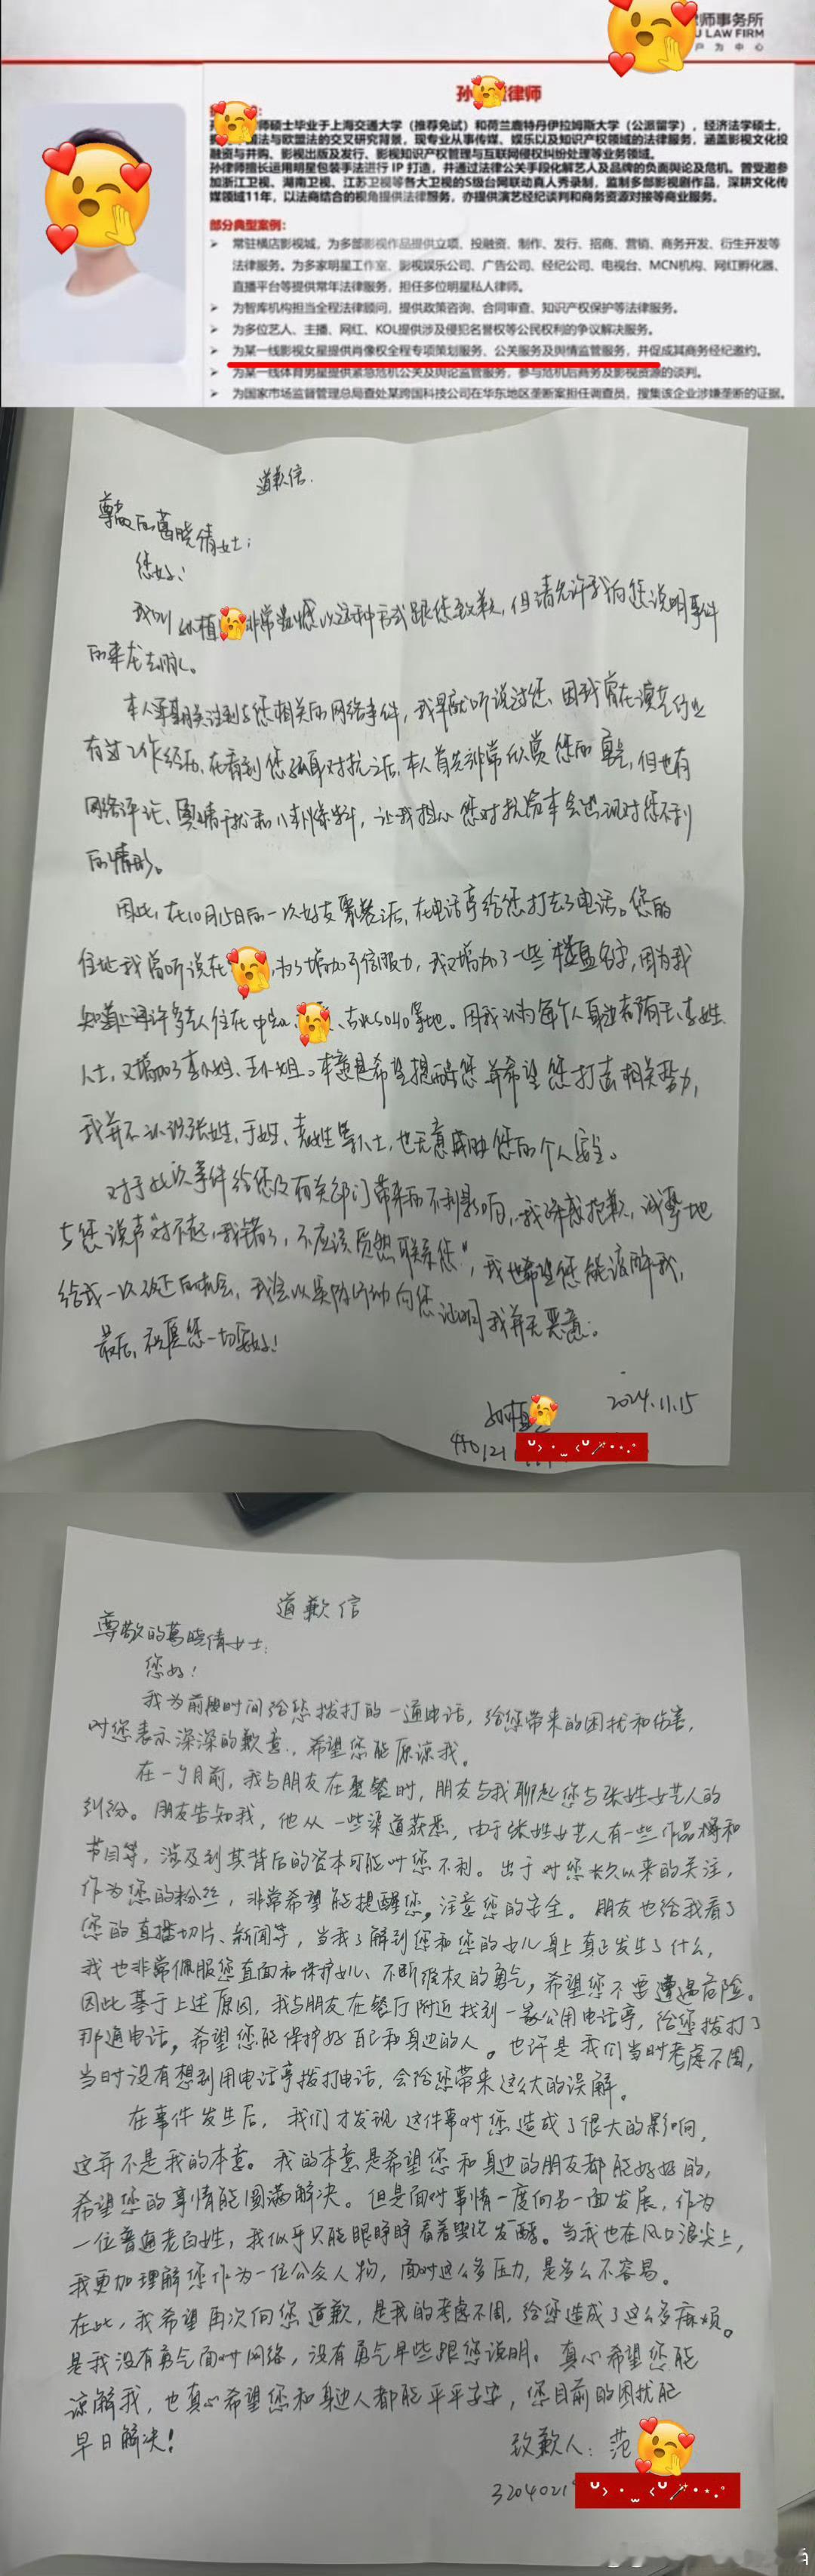 师事务所
U LAW FIRM
户 为 中 心
孙 律师
师硕士毕业于上海交通大学（推荐免试）和荷兰鹿特丹伊拉姆斯大学（公派留学），经济法学硕士，
国法与欧盟法的交叉研究背景。现专业从事传媒、娱乐以及知识产权领域的法律服务，涵盖影视文化投
融资与并购、影视出版及发行、影视知识产权管理与互联网侵权纠纷处理等业务领域。
孙律师擅长运用明星包装手法进行 IP 打造，并通过法律公关手段化解艺人及品牌的负面舆论及危机。曾受邀参
加浙江卫视、湖南卫视、江苏卫视等各大卫视的S级台网联动真人秀录制，监制多部影视剧作品，深耕文化传
媒领域11年，以法商结合的视角提供法律服务，亦提供演艺经纪谈判和商务资源对接等商业服务。
部分典型案例：
➢ 常驻横店影视城，为多部影视作品提供立项、投融资、制作、发行、招商、营销、商务开发、衍生开发等
法律服务。为多家明星工作室、影视娱乐公司、广告公司、经纪公司、电视台、MCN机构、网红孵化器、
直播平台等提供常年法律服务，担任多位明星私人律师。
➢ 为智库机构担当全程法律顾问，提供政策咨询、合同审查、知识产权保护等法律服务。
➢ 为多位艺人、主播、网红、KOL提供涉及侵犯名誉权等公民权利的争议解决服务。
➢ 为某一线影视女星提供肖像权全程专项策划服务、公关服务及舆情监管服务，并促成其商务经纪邀约。
➢ 为某一线体育男星提供紧急危机公关及舆论监管服务，参与危机后商务及影视资源的谈判。
➢ 为国家市场监督管理总局查处某跨国科技公司在华东地区垄断案担任调查员，搜集该企业涉嫌垄断的证据。
道歉信.
尊敬的葛晓倩女士：
您好！
我叫孙植 非常遗憾以这种方式跟您致歉，但请允许我向您说明事件
的来龙去脉。
本人早期关注到与您相关的网络事件，我早就听说过您、因我曾在演艺行业
有过工作经历、在看到您孤身对抗之后，本人首先非常欣赏您的勇气，但也有
网络评论、舆情干扰和八卦爆料，让我担心您对抗资本会出现对您不利
的情形。
因此，在10月15日的一次好友聚餐后，在电话亭给您打去了电话。您的
住址我曾听说在 ，为了增加可信服力，我又增加了一些楼盘名字，因为我
知道上海许多艺人住在中 、古北SOHO等地。因我认为每个人身边都有王、李姓
人士，又增加了李小姐、王小姐。本意是希望提醒您并希望您打击相关势力，
我并不认识张姓、于姓、袁姓等人士，也无意威胁您的个人安全。
对于此次事件给您及有关部门带来的不利影响，我深感抱歉，诚挚地
与您说声"对不起，我错了，不应该贸然联系您"，我也希望您能谅解我，
给我一次改正的机会，我会以实际行动向您证明我并无恶意。
最后，祝愿您一切安好！
孙植 2024.11.15
道歉信
尊敬的葛晓倩女士：
您好！
我为前段时间给您拨打的一通电话，给您带来的困扰和伤害，
对您表示深深的歉意，希望您能原谅我。
在一个月前，我与朋友在聚餐时，朋友与我聊起您与张姓女艺人的
纠纷。朋友告知我，他从一些渠道获悉，由于张姓女艺人有一些作品播和
节目等，涉及到其背后的资本可能对您不利。出于对您长久以来的关注，
作为您的粉丝，非常希望能提醒您，注意您的安全。朋友也给我看了
您的直播切片、新闻等，当我了解到您和您的女儿身上真正发生了什么，
我也非常佩服您直面和保护女儿、不断维权的勇气，希望您不要遭遇危险。
因此基于上述原因，我与朋友在餐厅附近找到一家公用电话亭，给您拨打了
那通电话，希望您能保护好自己和身边的人。也许是我们当时考虑不周，
当时没有想到用电话亭拨打电话，会给您带来这么大的误解。
在事件发生后，我们才发现这件事对您造成了很大的影响，
这并不是我的本意。我的本意是希望您和身边的朋友都能好好的，
希望您的事情能圆满解决。但是面对事情一度向另一面发展，作为
一位普通老百姓，我似乎只能眼睁睁看着舆论发酵。当我也在风口浪尖上，
我更加理解您作为一位公众人物，面对这么多压力，是多么不容易。
在此，我希望再次向您道歉，是我的考虑不周，给您造成了这么多麻烦。
是我没有勇气面对网络，没有勇气早些跟您说明。真心希望您能
谅解我，也真心希望您和身边人都能平平安安，您目前的困扰能
早日解决！
致歉人：范
3204021